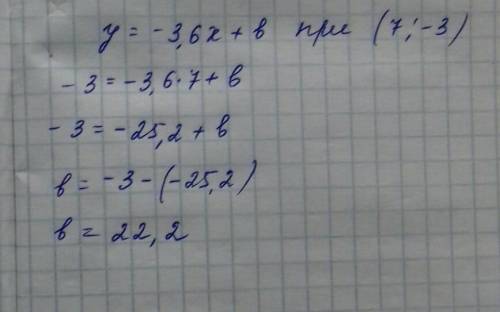 y = -3,6x + в при (7; -3)
-3 = -3,6·7 + в
-3 = -25,2 + в
в = -3 - (-25,2)
в = 22,2